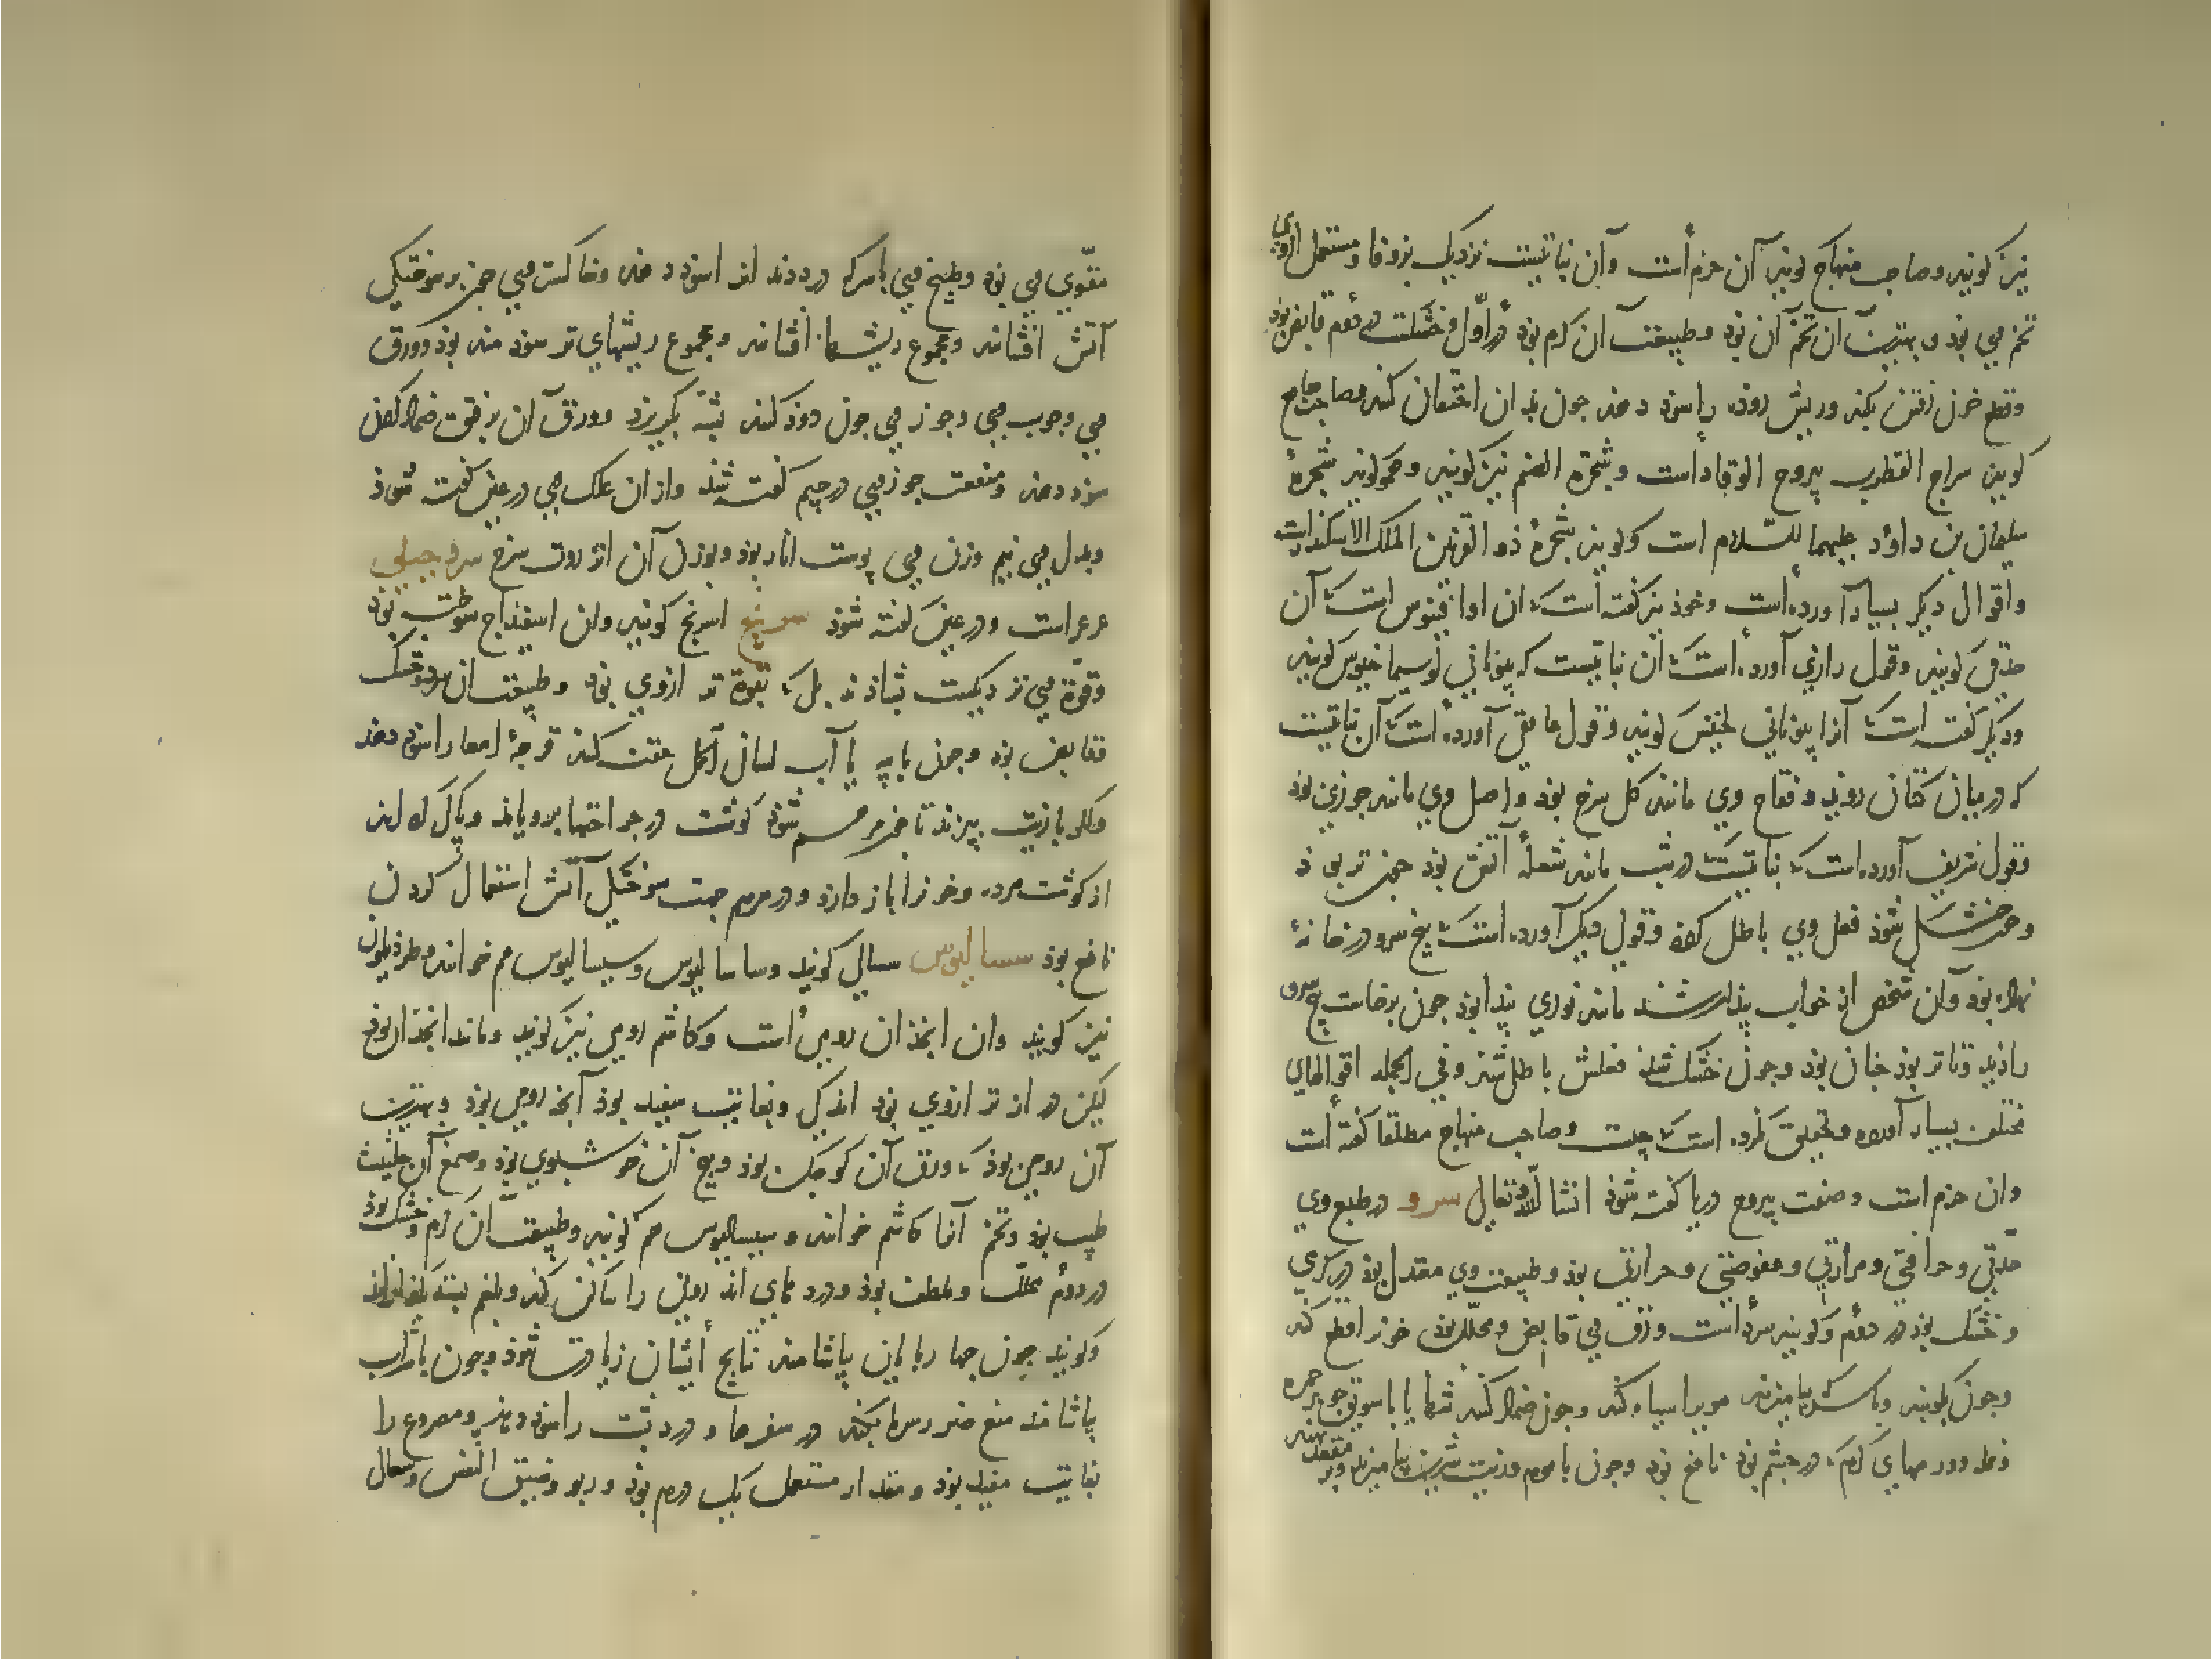 نیز کویند وصاحب منهاج کوید آن خزم است وآن نباتیست نزدیک بزوفا ومستعمل ازوی
تخم وی بود و بهترین آن تخم آن بود وطبیعت ان کرم بود در اول وخشکست در دوم قابض بود
وقطع خون رفتن بکند وریش روده را سود دهد چون بدان احتقان کنند وصاحب جامع
کوید سراج القطرب یبروح الوقاد است وشجرة الصنم نیز کویند وهم کویند شجرهٔ
سلیمان بن داود علیهما السلام است وکویند شجرهٔ ذو القرنین الملک الاسکندر است
واقوال دیکر بسیار آورده است وخود نیز کفته است که ان اوافینوس است که آن
حدقی کویند وقول رازی آورده است که آن نباتیست که بیونانی لوسیماخیوس کویند
ودیکر کفته است که آنرا بیونانی لخنیس کویند وقول غافقی آورده است که آن نباتیست
که درمیان کتان روید وفقاح وی مانند کل سرخ بود واصل وی مانند جوزی بود
وقول شریف آورده است که نباتیست که در شب مانند شعلهٔ آتش بود چون تر بود
وچون خشک شود فعل وی باطل کردد وقول دیکر آورده است که بیخ سرو در خانهٔ
نهاده بود وآن شخص از خواب بیدار شد مانند نوری پیدا بود چون برخاست بیخ سرو
را دید وتا تر بود چنان بود وچون خشک شد فعلش باطل شد وفی الجمله اقوالهای
مختلف بسیار آورده وتحقیق نکرده است که چیست وصاحب منهاج مطلقا کفته است
وان خزم است وصفت یبروح در یا کفته شود انشا الله تعالی سرو در طبع وی
حدتی وحرافتی ومرارتی وعفوصتی وحرارتی بود وطبیعت وی معتدل بود در کرمی
وخشک بود در دوم وکویند سرد است وورق وی قابض ومحلل بود خون را قطع کند
وچون بکوبند وباسرکه بیامیزند موی را سیاه کند وچون ضماد کنند تنها یا با سویق جو بر حمره
ونمله وورمهای کرم که در چشم بود نافع بود وچون با موم وزیت شیرین بیامیزند وبر معده نهند
مقوی وی بود وطبیخ وی با سرکه درد دندانرا سود دهد وخاکستر وی چون بر سوختکی
آتش افشانند ومجموع ریشها افشانند ومجموع ریشهای تر سودمند بود وورق
وی وچوب وی وجوز وی چون دود کنند پشه بکریزد وورق آن بر فتق ضماد کردن
سود دهد ومنفعت جوز وی در جیم کفته شد وازان علک وی در عین کفته شود
وبدل وی نیم وزن وی پوست انار بود وبوزن آن انزروت سرخ سرو جبلی
عرعر است ودر عین کفته شود سرنج اسرنج کویند وان اسفیداج سوخته بود
وقوة وی نزدیکست بشاذنه بل که بقوة تر ازوی بود وطبیعت ان سرد وخشک
وقابض بود وچون با پیه یا آب لسان الحمل حقنه کنند قرحهٔ امعا را سود دهد
وکلی با زیت بپزند تا چون مرهم شود کوشت در جراحتها برویاند وپاک کرداند
از کوشت مرده وخون را باز دارد ودر مرهم جهت سوختکی آتش استعمال کردن
نافع بود سسالیوس سسالی کویند وساسالیوس وسیسالیوس هم خوانند وطردیلون
نیز کویند وان انجذان رومی است وکاشم رومی نیز کویند ومانند انجذان بود
لیکن درازتر ازوی بود اندکی وبغایت سفید بود آنچه رومی بود وبهترین
آن رومی بود که ورق آن کوچک بود وبیخ آن خوشبوی بود وصمغ آن حلتیت
طیب بود وتخم آنرا کاشم خوانند وسیسالیوس هم کویند وطبیعت آن کرم وخشک بود
در دوم محلل وملطف بود ودردهای اندرونی را ساکن کند وبلغم بسته بکدازاند
وکویند چون چهارپایان بیاشامند نتایج ایشان زیادت شود وچون با شراب
بیاشامند منع ضرر سرما بکند در سفرها ودرد پشت را سود دهد ومصروع را
بغایت مفید بود ومقدار مستعمل یک درم بود وربو وضیق النفس وسعال